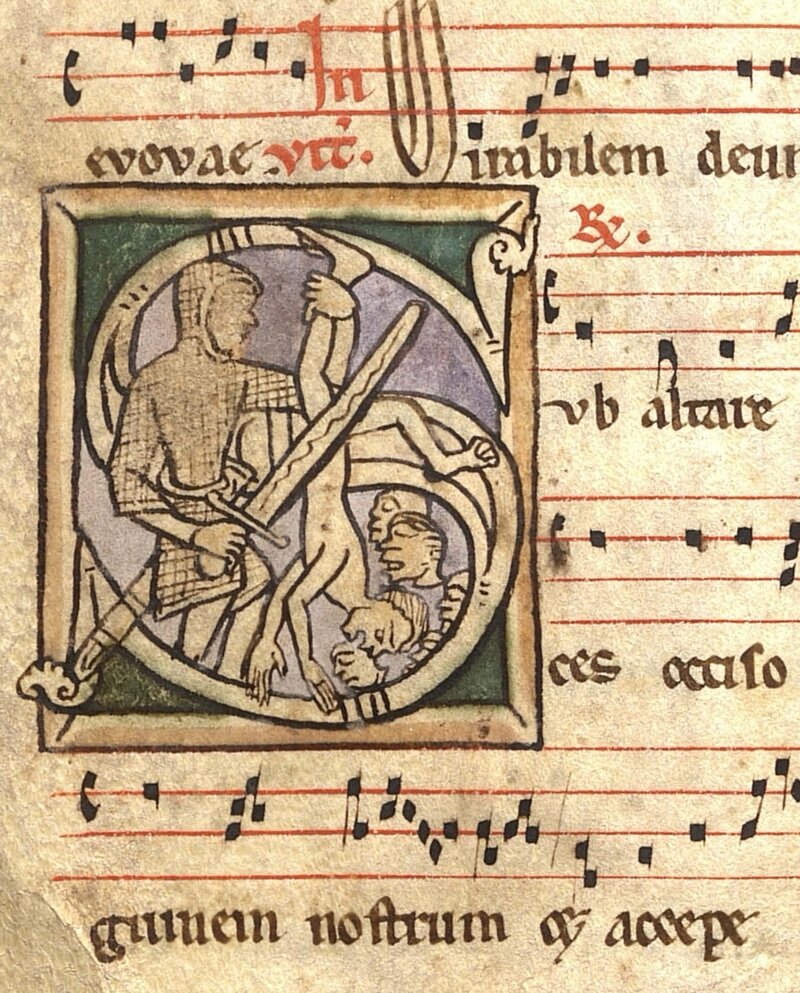 In
evovae vıt̄. Mirabilem deum
℞.
Sub altare
ces occiso
guinem nostrum & accepe